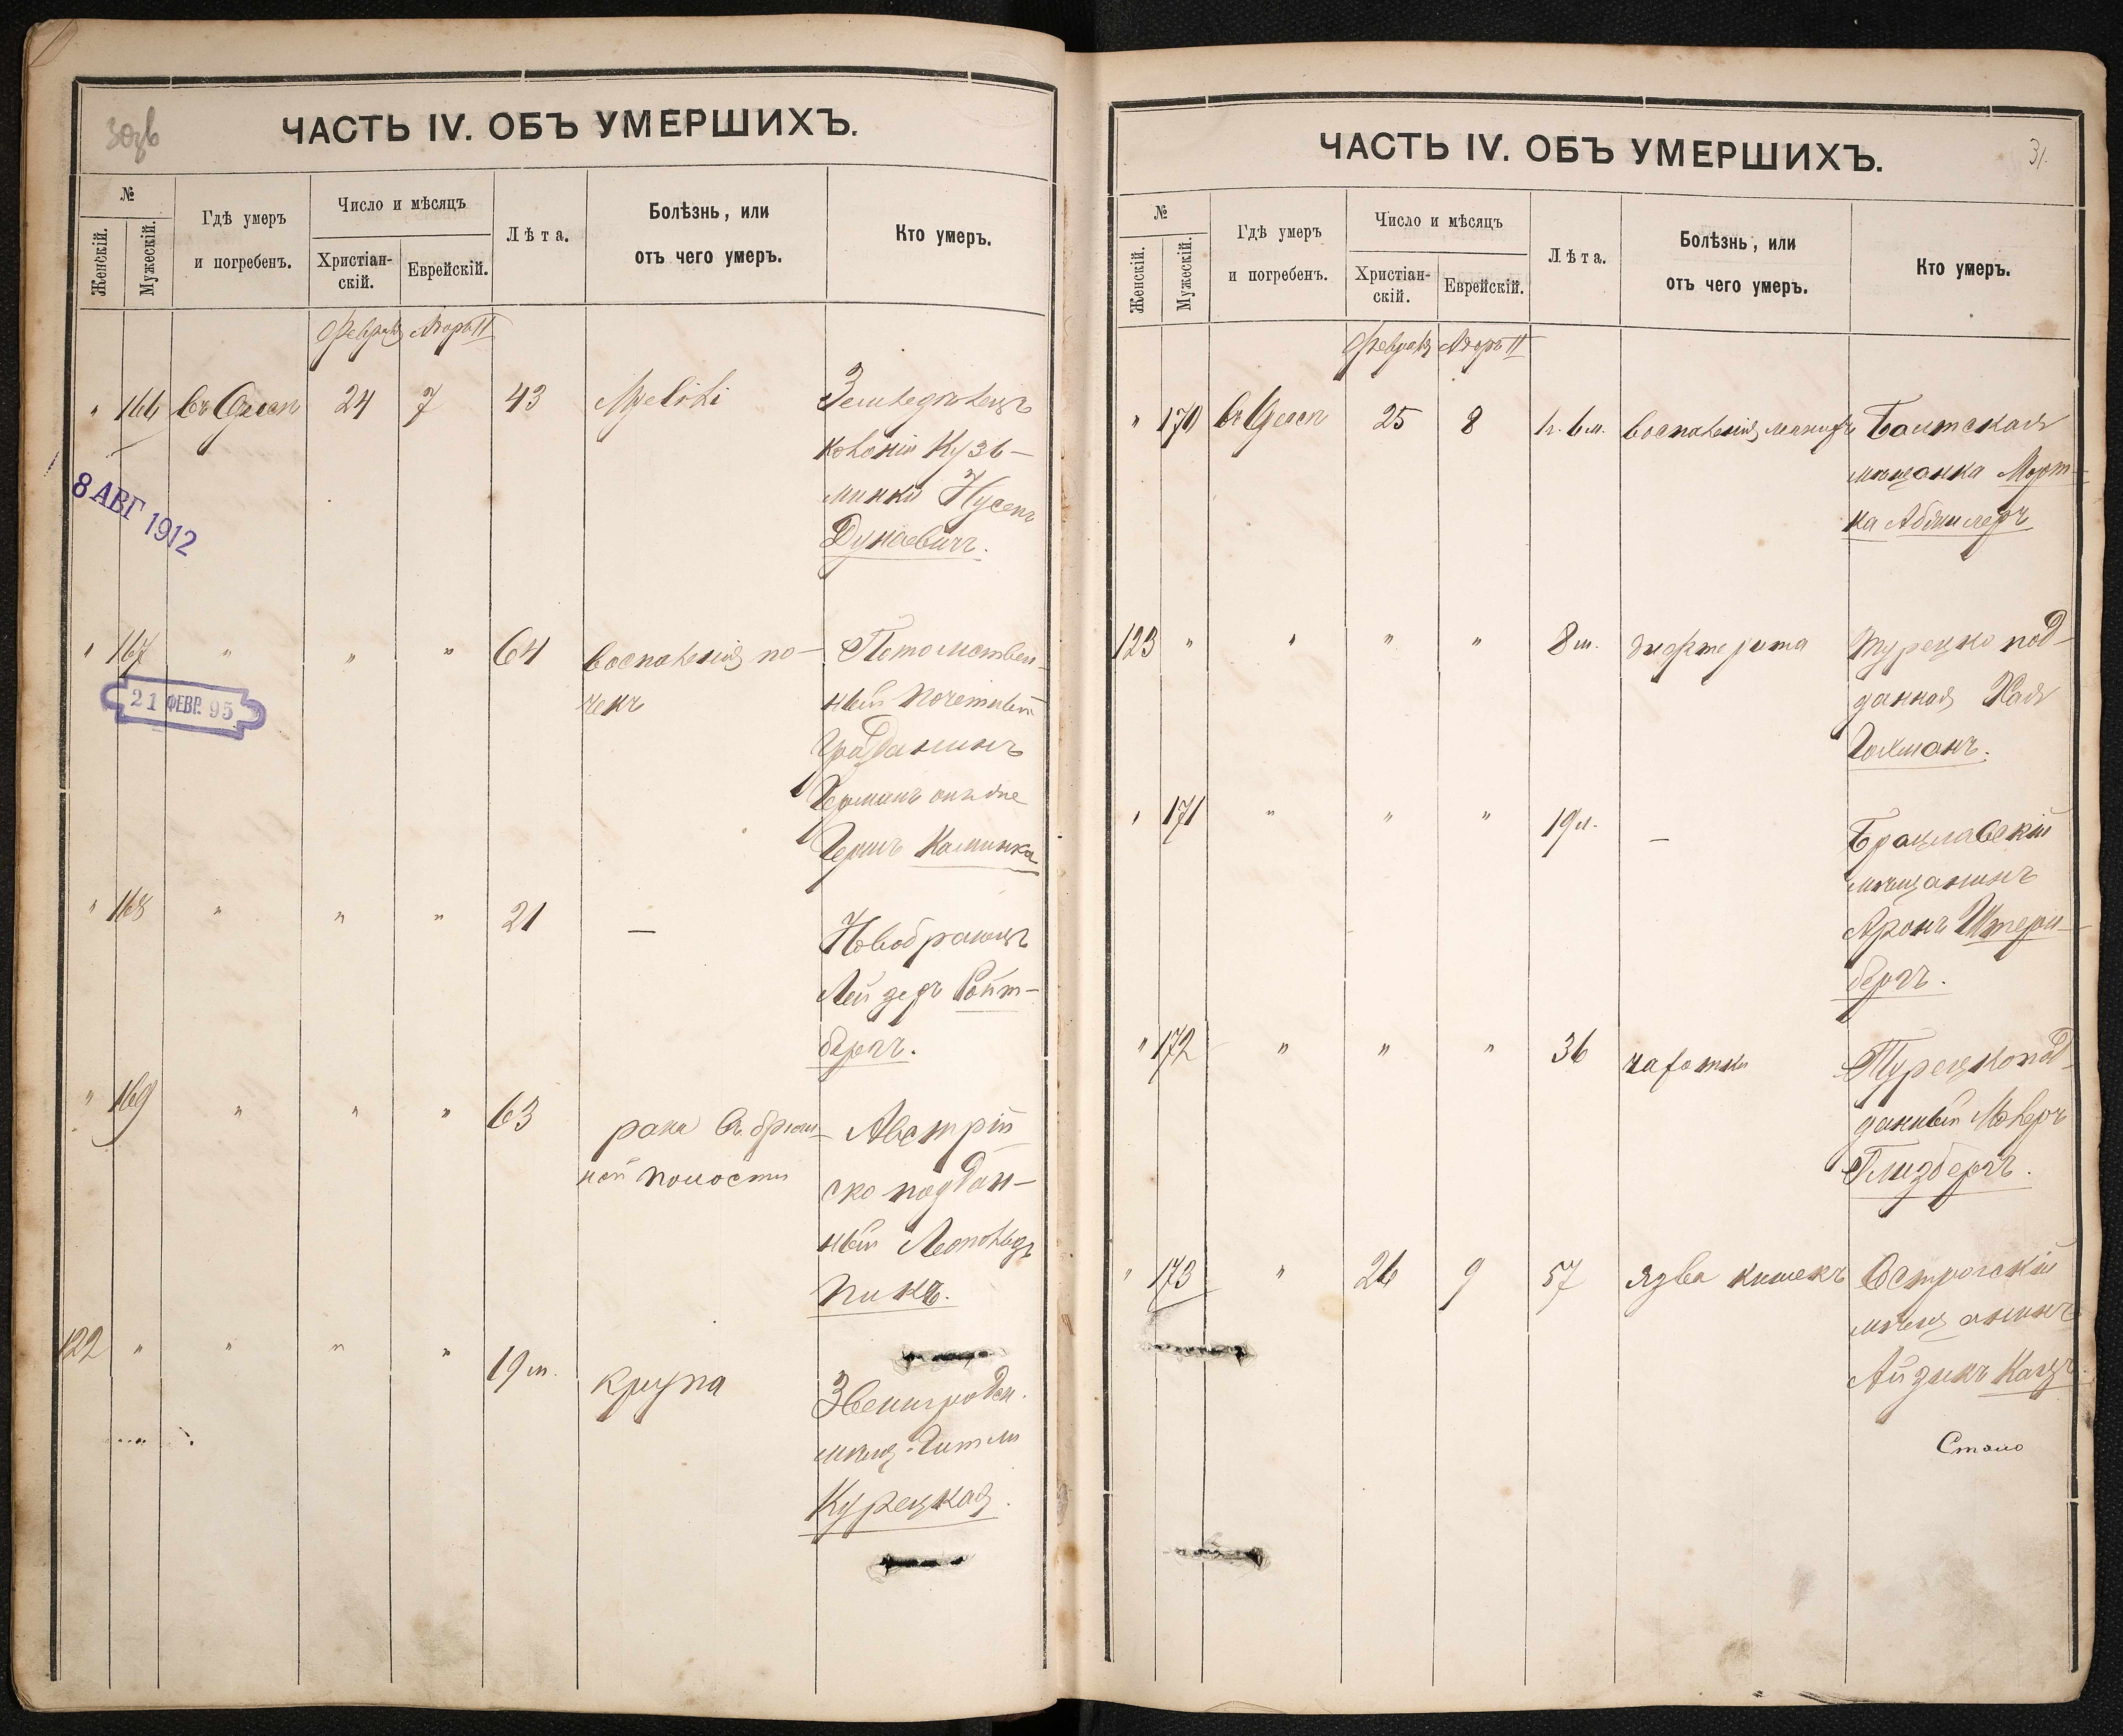 ЧАСТЬ IV. ОБЪ УМЕРШИХЪ.
№
Женскій.
Мужескій.
Гдѣ умеръ
и погребенъ.
Число и мѣсяцъ
Христіан-
скій.
Еврейскій.
Лѣта.
Болѣзнь, или
отъ чего умеръ.
Кто умеръ.
Адаръ II
" 166 въ Одессѣ 24 7 43 Земледѣлецъ
колоніи Кузь-
минки Нусенъ
Дунаевичъ.
8 АВГ 1912
" 167 " " " 64 воспаленія по- Потомствен-
чекъ ный почетный
гражданинъ
Германъ онъ же
Гершъ Каминка
21 ФЕВР. 95
" 168 " " " 21 — Новобранецъ
Лейзеръ Ройт-
бергъ.
" 169 " " " 63 рака въ брюш- Австрій
ной полости ско поддан-
ный Леопольдъ
Пикъ.
122 " " " " 19 м. крупа Звенигородск.
мѣщ. Гитля
Курецкая.
ЧАСТЬ IV. ОБЪ УМЕРШИХЪ.
31.
№
Женскій.
Мужескій.
Гдѣ умеръ
и погребенъ.
Число и мѣсяцъ
Христіан-
скій.
Еврейскій.
Лѣта.
Болѣзнь, или
отъ чего умеръ.
Кто умеръ.
Адаръ II
" 170 въ Одессѣ 25 8 1 г. 6 м. воспаленія Балтская
мѣщанка
123 " " " " 8 м. дифтерита Турецко под-
данная Хая
Гохманъ.
" 171 " " " 19 л. — Брацлавскій
мѣщанинъ
Аронъ Штерн-
бергъ.
" 172 " " " 36 чахотки Турецкопод-
данный Мееръ
Глизбергъ.
" 173 " 26 9 57 язва кишекъ Острогскій
мѣщанинъ
Айзикъ Кацъ.
Стало